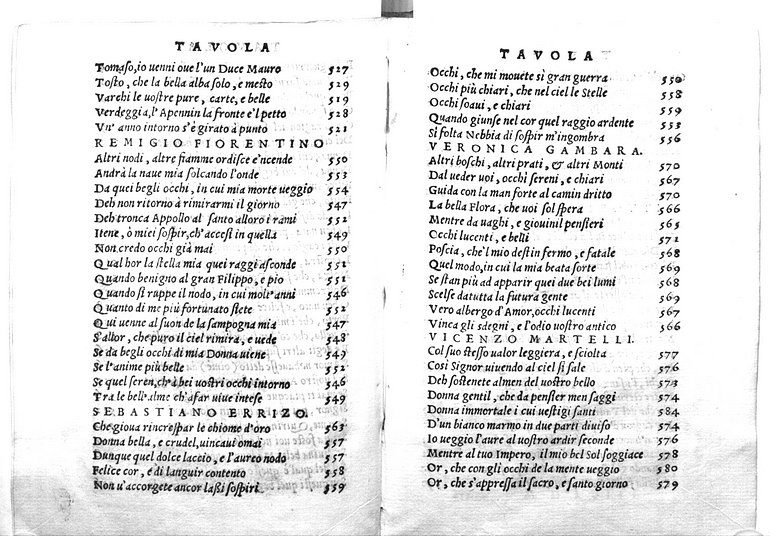 TAVOLA
Tomaso, io uenni oue l'un Duce Mauro 527
Tosto, che la bella alba solo, e mesto 529
Varchi le uostre pure, carte, e belle 519
Verdeggia, l'Apennin la fronte e'l petto 528
Vn' anno intorno s'è girato à punto 521
REMIGIO FIORENTINO
Altri nodi, altre fiamme ordisce e'ncende 550
Andrà la naue mia solcando l'onde 553
Da quei begli occhi, in cui mia morte ueggio 554
Deh non ritornò à rimirarmi il giorno 547
Deh tronca Appollo al santo alloro i rami 552
Itene, ò miei sospir, ch'accesi in quella 549
Non credo occhi già mai 550
Qual hor la stella mia quei raggi asconde 551
Quando benigno al gran Filippo, e pio 551
Quando si ruppe il nodo, in cui molt' anni 546
Quanto di me più fortunato siete 552
Qui uenne al suon de la sampogna mia 547
S'allor, che puro il ciel rimira, e uede 548
Se da begli occhi di mia Donna uiene 549
Se l'anime più belle 552
Se quel seren, ch'à bei uostri occhi intorno 546
Tra le bell'alme ch'àfar uiue intese 549
SEBASTIANO ERRIZO.
Che gioua rincrespar le chiome d'oro 563
Donna bella, e crudel, uincaui omai 557
Dunque quel dolce laccio, e l'aureo nodo 557
Felice cor, e di languir contento 558
Non u'accorgete ancor lassi sospiri 559
TAVOLA
Occhi, che mi mouete sì gran guerra 550
Occhi più chiari, che nel ciel le Stelle 558
Occhi soaui, e chiari 559
Quando giunse nel cor quel raggio ardente 553
Si folta Nebbia di sospir m'ingombra 556
VERONICA GAMBARA.
Altri boschi, altri prati, & altri Monti 570
Dal ueder uoi, occhi sereni, e chiari 567
Guida con la man forte al camin dritto 570
La bella Flora, che uoi sol spera 566
Mentre da uaghi, e giouinil pensieri 565
Occhi lucenti, e belli 571
Poscia, che'l mio destin fermo, e fatale 568
Quel modo, in cui la mia beata sorte 569
Se stan più ad apparir quei due bei lumi 568
Scelse da tutta la futura gente 569
Vero albergo d'Amor, occhi lucenti 567
Vinca gli sdegni, e l'odio uostro antico 566
VICENZO MARTELLI.
Col suo stesso ualor leggiera, e sciolta 577
Così Signor uiuendo al ciel si sale 576
Deh sostenete almen del uostro bello 573
Donna gentil, che da penster men saggi 574
Donna immortale i cui uestigi santi 584
D'un bianco marmo in due parti diuiso 574
Io ueggio l'aure al uostro ardir seconde 576
Mentre al tuo Impero, il mio bel Sol soggiace 578
Or, che con gli occhi de la mente ueggio 580
Or, che s'appressa il sacro, e santo giorno 579